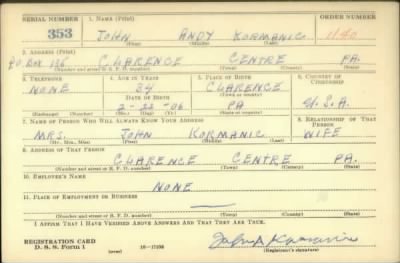 SERIAL NUMBER 1. NAME (Print) ORDER NUMBER
353 JOHN ANDY KORMANIC 1140
(First) (Middle) (Last)
2. ADDRESS (Print)
PO BOX 136 CLARENCE CENTRE PA.
(Number and street or R. F. D. number) (Town) (County) (State)
3. TELEPHONE 4. AGE IN YEARS 5. PLACE OF BIRTH 6. COUNTRY OF CITIZENSHIP
NONE 34 CLARENCE
DATE OF BIRTH (Town or county)
2-22-06 PA U.S.A.
(Mo.) (Day) (Yr.) (State or country)
7. NAME OF PERSON WHO WILL ALWAYS KNOW YOUR ADDRESS 8. RELATIONSHIP OF THAT PERSON
MRS. JOHN KORMANIC WIFE
(Mr., Mrs., Miss) (First) (Middle) (Last)
9. ADDRESS OF THAT PERSON
CLARENCE CENTRE PA.
(Number and street or R. F. D. number) (Town) (County) (State)
10. EMPLOYER'S NAME
NONE
11. PLACE OF EMPLOYMENT OR BUSINESS
(Number and street or R. F. D. number) (Town) (County) (State)
I AFFIRM THAT I HAVE VERIFIED ABOVE ANSWERS AND THAT THEY ARE TRUE.
REGISTRATION CARD
D. S. S. Form 1 (over) 16-17105 (Registrant's signature)